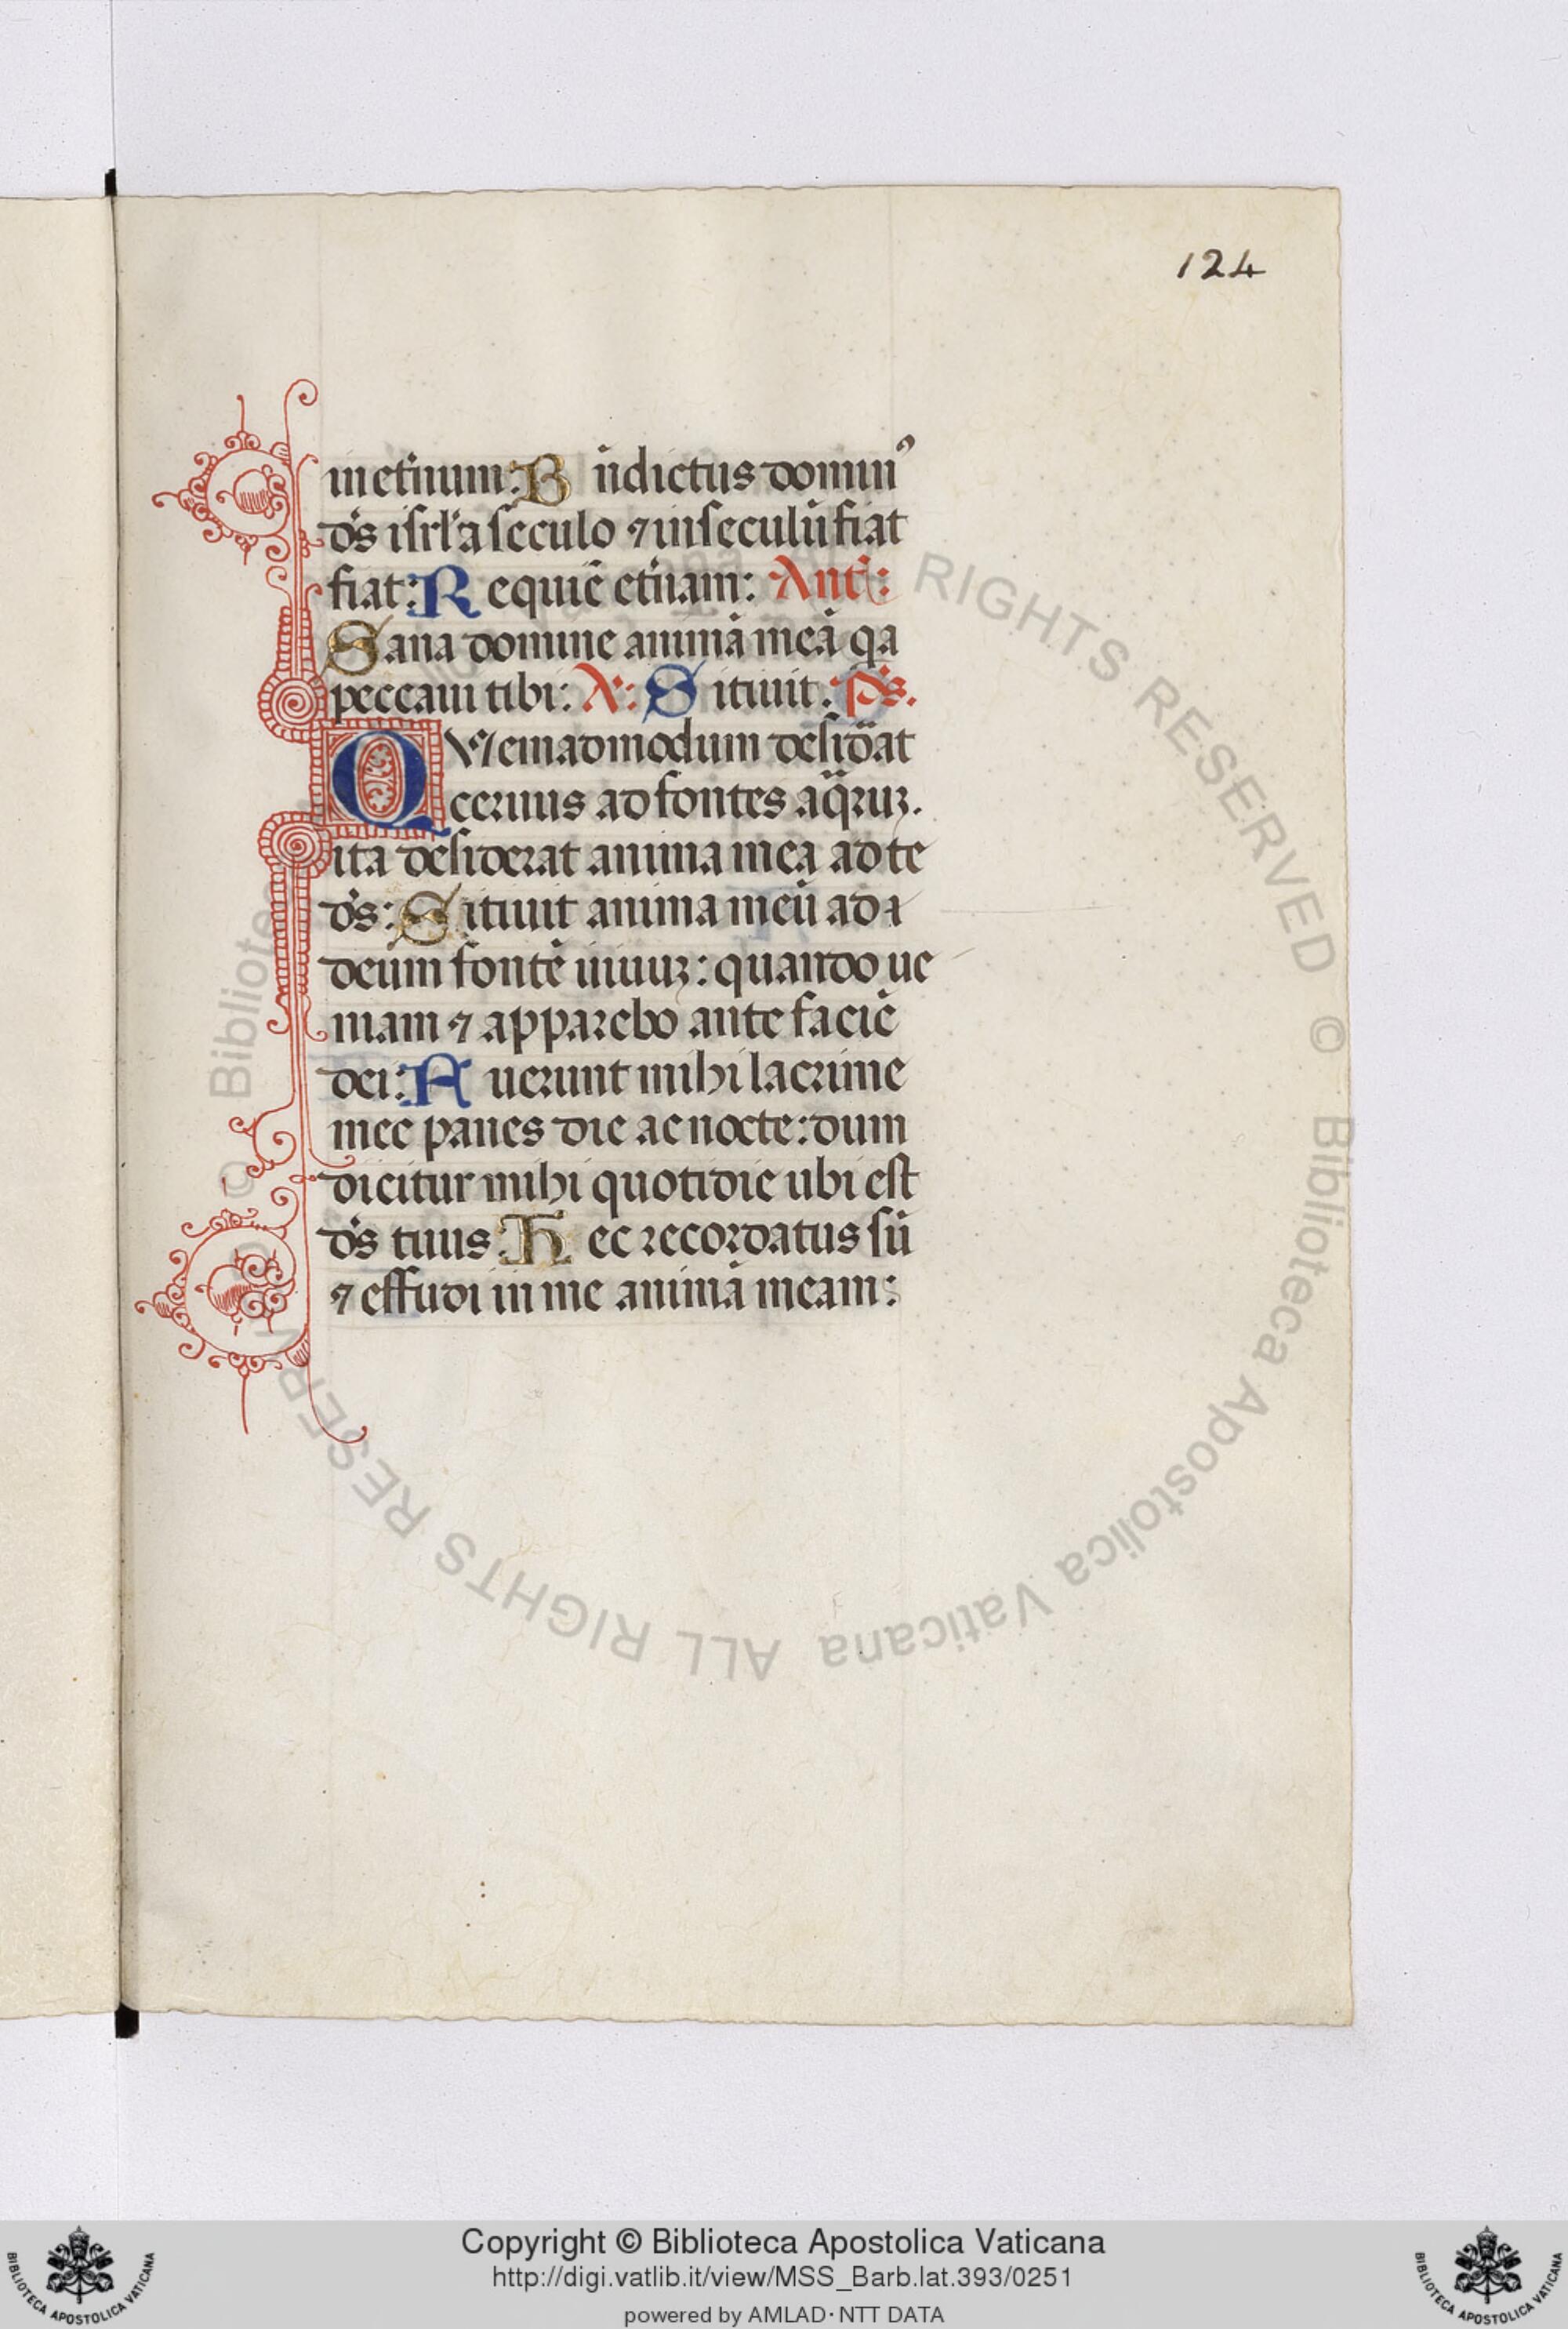 124
in et̄nuum: B n̄dictus domin⁹
ds̄ isrl̄ a seculo ⁊ in seculū fiat
fiat: R equiē et̄nam: Ant̄:
Sana domine animā meā qa
peccaui tibi: A: S itiuit. Ps̄.
QVemadmodum desiđat
ceruus ad fontes aq̄ruꝫ.
ita desiderat anima mea ad te
ds̄: S itiuit anima meū ad
deum fontē uiuuꝫ: quando ue
niam ⁊ apparebo ante faciē
dei: F uerunt mihi lacrime
mee panes die ac nocte: dum
dicitur mihi quotidie ubi est
ds̄ tuus: H ec recordatus sū
⁊ effudi in me animā meam:
© Biblioteca Apostolica Vaticana ALL RIGHTS RESERVED © Biblioteca Apostolica Vaticana ALL RIGHTS RESERVED
Copyright © Biblioteca Apostolica Vaticana
http://digi.vatlib.it/view/MSS_Barb.lat.393/0251
powered by AMLAD·NTT DATA
BIBLIOTECA APOSTOLICA VATICANA
BIBLIOTECA APOSTOLICA VATICANA